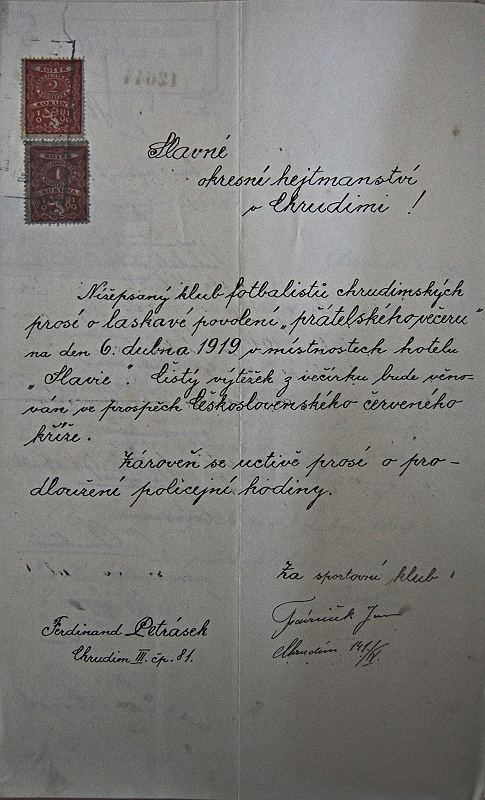 KOLEK
2
KORUNY
KOLEK
1
KORUNA
Slavné
okresné hejtmanství
v Chrudimi!
Nížepsaný klub fotbalistů chrudimských
prosí o laskavé povolení „přátelského večeru"
na den 6. dubna 1919 v místnostech hotelu
„Slavie". Čistý výtěžek z večírku bude věno-
ván ve prospěch Československého červeného
kříže.
Zároveň se uctivě prosí o pro-
dloužení policejní hodiny.
Za sportovní klub
Ferdinand Petrásek
Chrudim III. čp. 81.
Jan
Chrudim